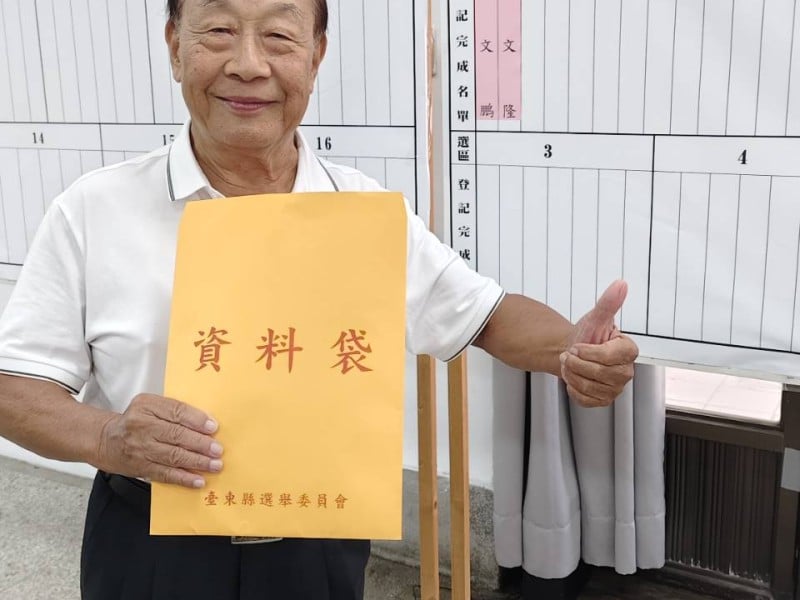 記完成名單
文鵬
文隆
14
15
16
選區
3
4
登記完成
資料袋
臺東縣選舉委員會